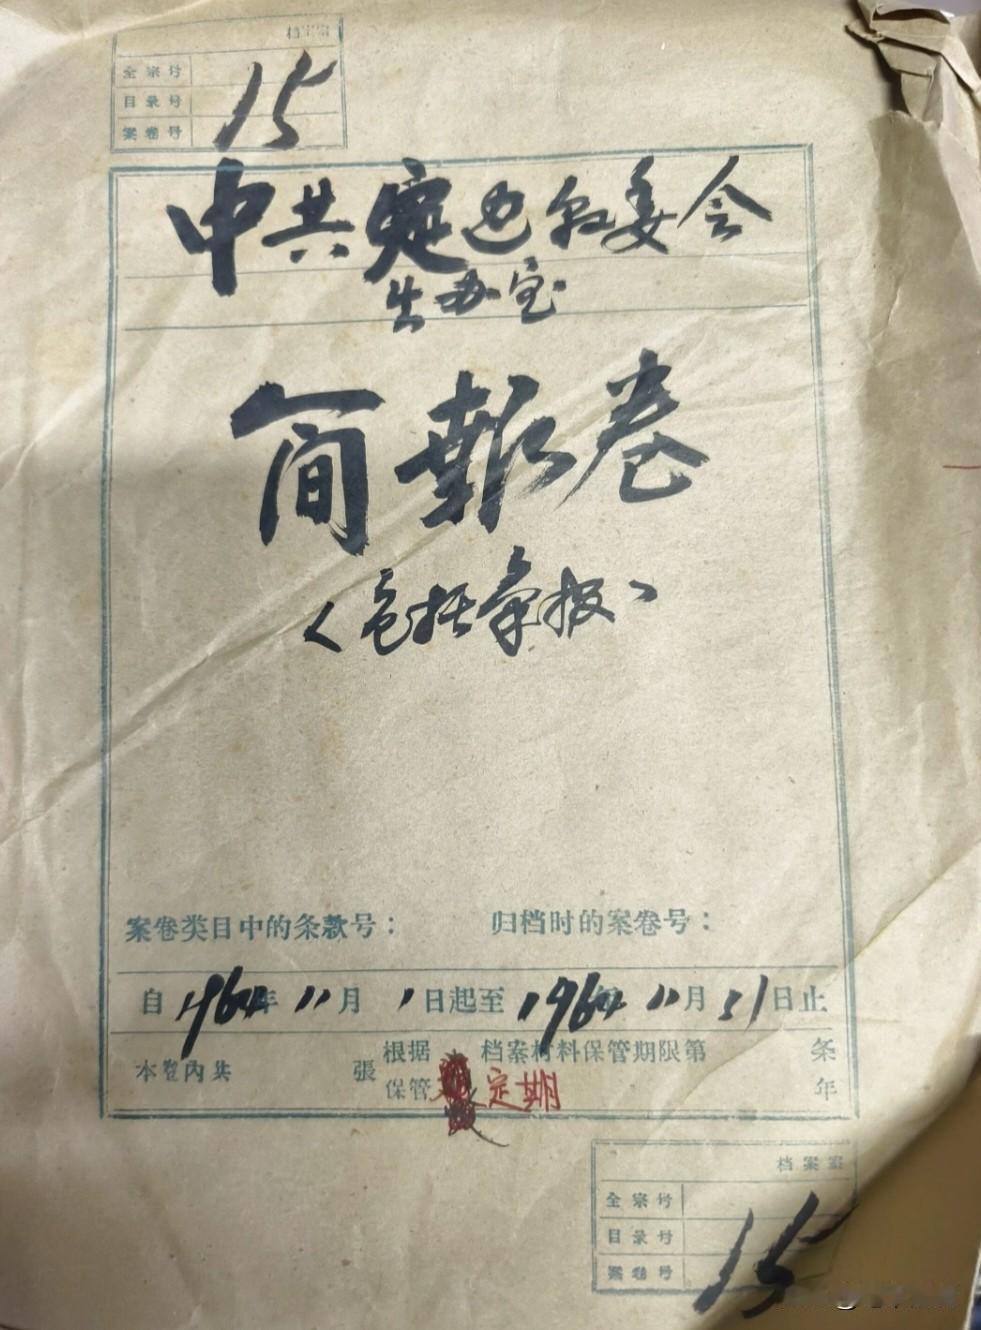 档案室
全宗号
目录号
案卷号
15
中共定边县委会
生办室
简報卷
〈包括彙报〉
案卷类目中的条款号： 归档时的案卷号：
自1964年11月1日起至1964年11月31日止
本卷内共 張 根据 档案材料保管期限第 条
保管 定期 年
档案室
全宗号
目录号
案卷号
15